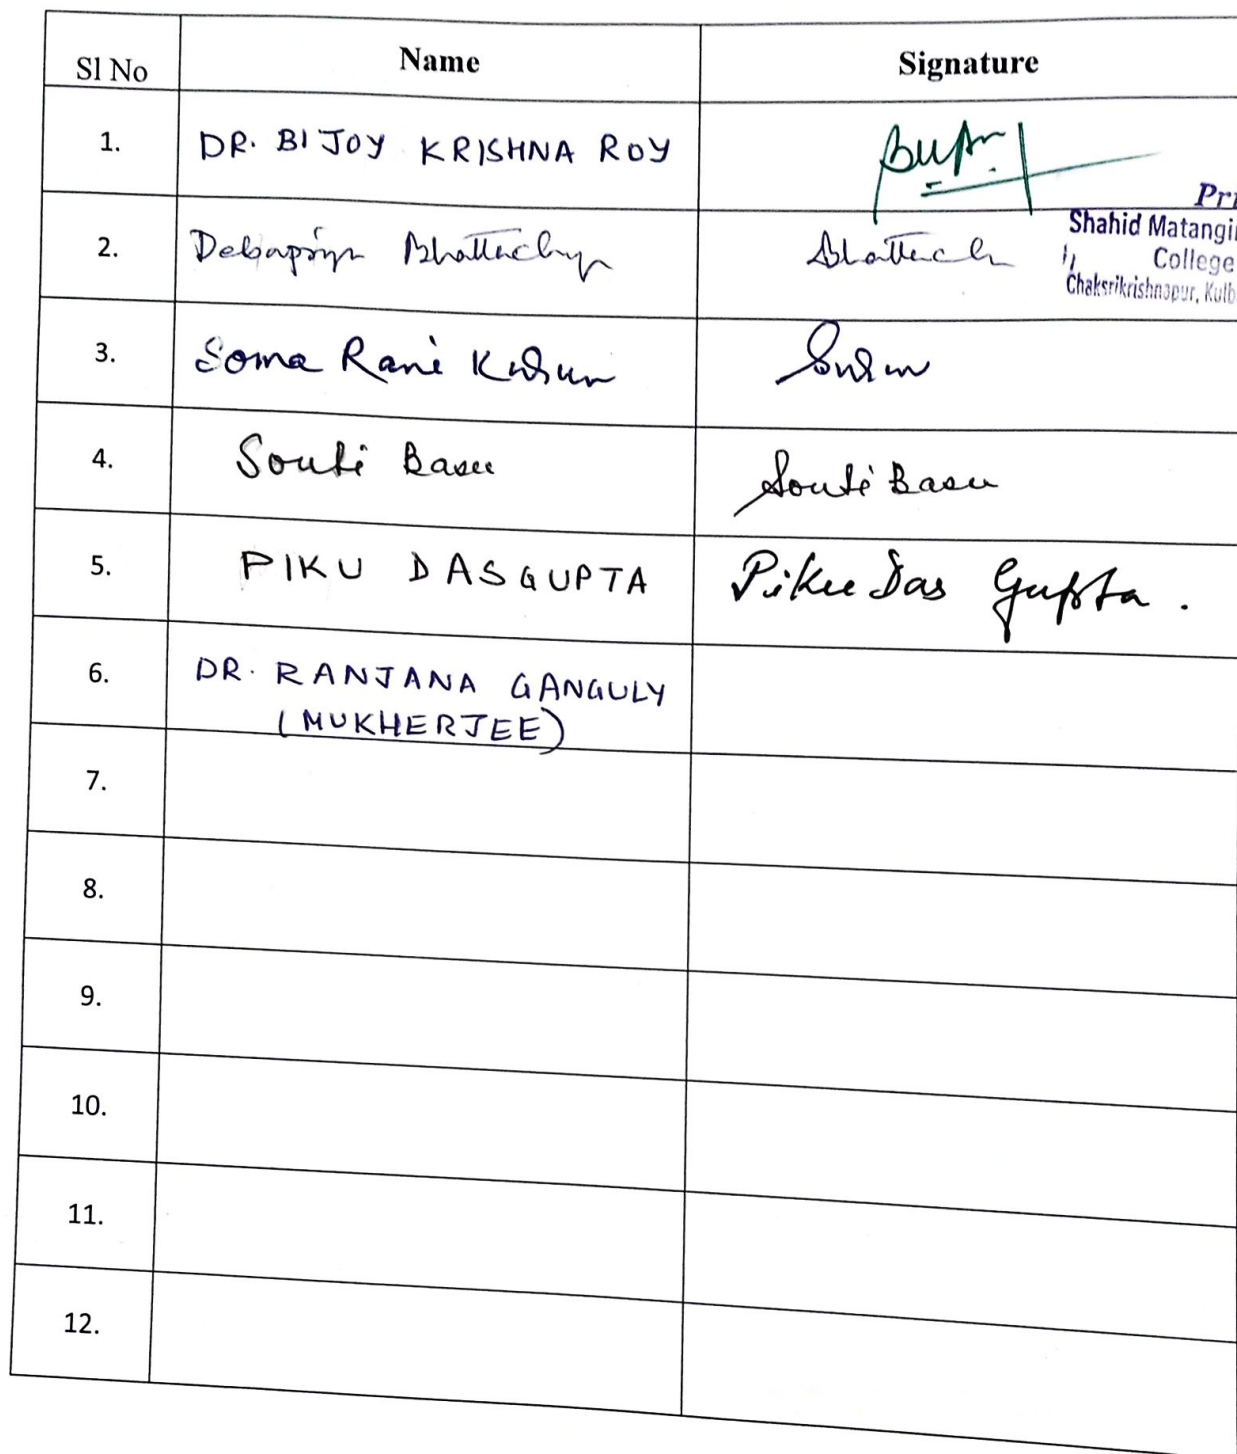 Sl No Name Signature
1. DR. BIJOY KRISHNA ROY
Pri
Shahid Matangin
College
Chaksrikrishnapur, Kulb
2. Debapriya Bhattacharya Bhattach
3. Soma Rani
4. Souti Basu Souti Basu
5. PIKU DASGUPTA Piku Das Gupta.
6. DR. RANJANA GANGULY
(MUKHERJEE)
7.
8.
9.
10.
11.
12.